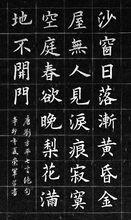 沙窗日落漸黃昏金
屋無人見淚痕寂寞
空庭春欲晚梨花滿
地不開門
唐劉方平七言絕句
辛卯年夏榮軍書